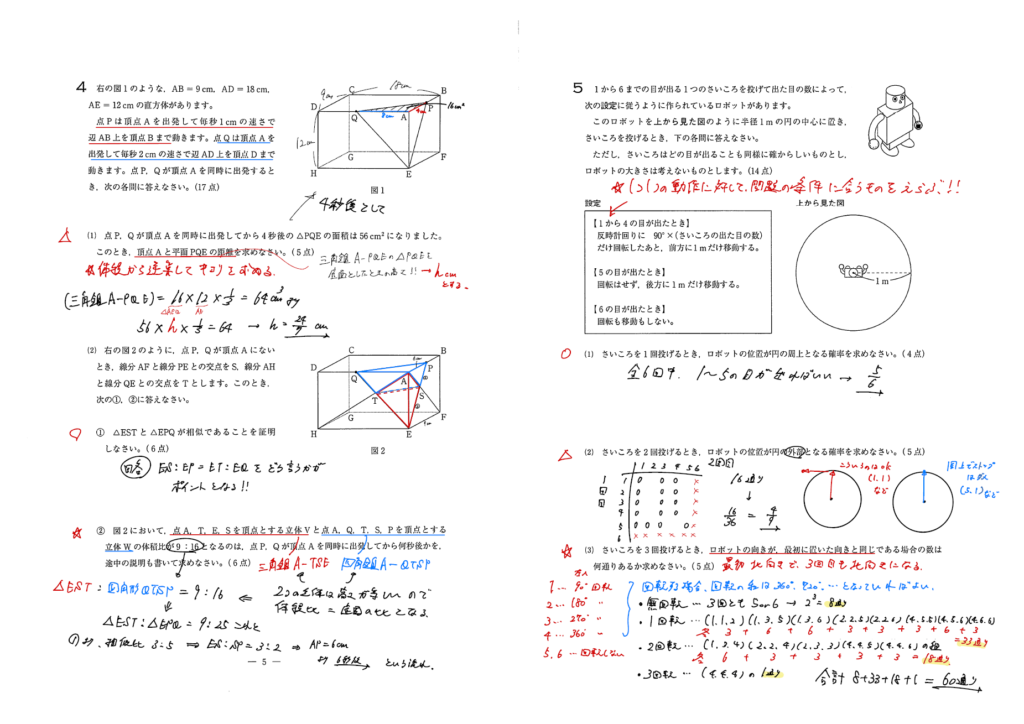 4 右の図1のような，AB = 9 cm，AD = 18 cm，
AE = 12 cm の直方体があります。
点Pは頂点Aを出発して毎秒1 cm の速さで
辺AB上を頂点Bまで動きます。点Qは頂点Aを
出発して毎秒2 cm の速さで辺AD上を頂点Dまで
動きます。点P，Qが頂点Aを同時に出発すると
き，次の各問に答えなさい。(17点)
18cm
9cm
C
B
D
Q
A
P
16cm²
8cm
4cm
12cm
G
F
H
E
図1
4秒後として
(1) 点P，Qが頂点Aを同時に出発してから4秒後の△PQEの面積は56 cm² になりました。
このとき，頂点Aと平面PQEの距離を求めなさい。(5点)
三角錐A-PQEの△PQEを
底面としたときの高さ!! → h cm
とする。
☆体積から逆算してキョリを求める。
(三角錐A-PQE) = 16×12×1/3 = 64cm³ より
△APQ AE
56×h×1/3 = 64 → h = 24/7 cm
(2) 右の図2のように，点P，Qが頂点Aにない
とき，線分AFと線分PEとの交点をS，線分AH
と線分QEとの交点をTとします。このとき，
次の①，②に答えなさい。
C
B
D
Q
A
P
T
S
G
F
H
E
図2
① △ESTと△EPQが相似であることを証明
しなさい。(6点)
回答 ES:EP = ET:EQ をどう言うかが
ポイントとなる!!
☆ ② 図2において，点A，T，E，Sを頂点とする立体Vと点A，Q，T，S，Pを頂点とする
立体Wの体積比が9：16となるのは，点P，Qが頂点Aを同時に出発してから何秒後かを，
途中の説明も書いて求めなさい。(6点)
三角錐A-TSE 四角錐A-QTSP
△EST：四角形QTSP = 9：16 ⇐ 2つの立体は高さが等しいので
体積比 = 底面の比となる。
△EST：△EPQ = 9：25 これと
①より，相似比 3:5 ⇒ ES:SP = 3:2 ⇒ AP = 6cm
より 6秒後 という流れ。
— 5 —
5 1から6までの目が出る1つのさいころを投げて出た目の数によって，
次の設定に従うように作られているロボットがあります。
このロボットを上から見た図のように半径1 m の円の中心に置き，
さいころを投げるとき，下の各問に答えなさい。
ただし，さいころはどの目が出ることも同様に確からしいものとし，
ロボットの大きさは考えないものとします。(14点)
☆1つ1つの動作に対して，問題の条件に合うものをえらぶ!!
設定
【1から4の目が出たとき】
反時計回りに 90°×(さいころの出た目の数)
だけ回転したあと，前方に1 m だけ移動する。
【5の目が出たとき】
回転はせず，後方に1 m だけ移動する。
【6の目が出たとき】
回転も移動もしない。
上から見た図
1 m
(1) さいころを1回投げるとき，ロボットの位置が円の周上となる確率を求めなさい。(4点)
全6回中，1〜5の目が出ればいい → 5/6
(2) さいころを2回投げるとき，ロボットの位置が円の外部となる確率を求めなさい。(5点)
1 2 3 4 5 6 2回目
1 0 0 0 ×
2 0 0 0 ×
3 0 0 0 ×
4 0 0 0 ×
5 0 0 0 0 ×
6 × × × × × ×
16通り
↓
16/36 = 4/9
こういうのはOK
(1,1)
など
(5,1)など
☆ (3) さいころを3回投げるとき，ロボットの向きが，最初に置いた向きと同じである場合の数は
何通りあるか求めなさい。(5点)
最初北向きで，3回目も北向きになる。
1… 90°回転
2… 180° 〃
3… 270° 〃
4… 360° 〃
5, 6 …回転しない
回転する場合，回転の和は360°, 720°, …となっていればよい。
・無回転… 3回とも5or6 → 2³ = 8通り
・1回転… (1,1,2)(1,3,5)(1,3,6)(2,2,5)(2,2,6)(4,5,5)(4,5,6)(4,6,6)
各 3 + 6 + 6 + 3 + 3 + 3 + 6 + 3
= 33通り
・2回転… (1,3,4)(2,2,4)(2,3,3)(4,4,5)(4,4,6)の組
各 6 + 3 + 3 + 3 + 3 = 18通り
・3回転… (4,4,4)の1通り
合計 8+33+18+1 = 60通り